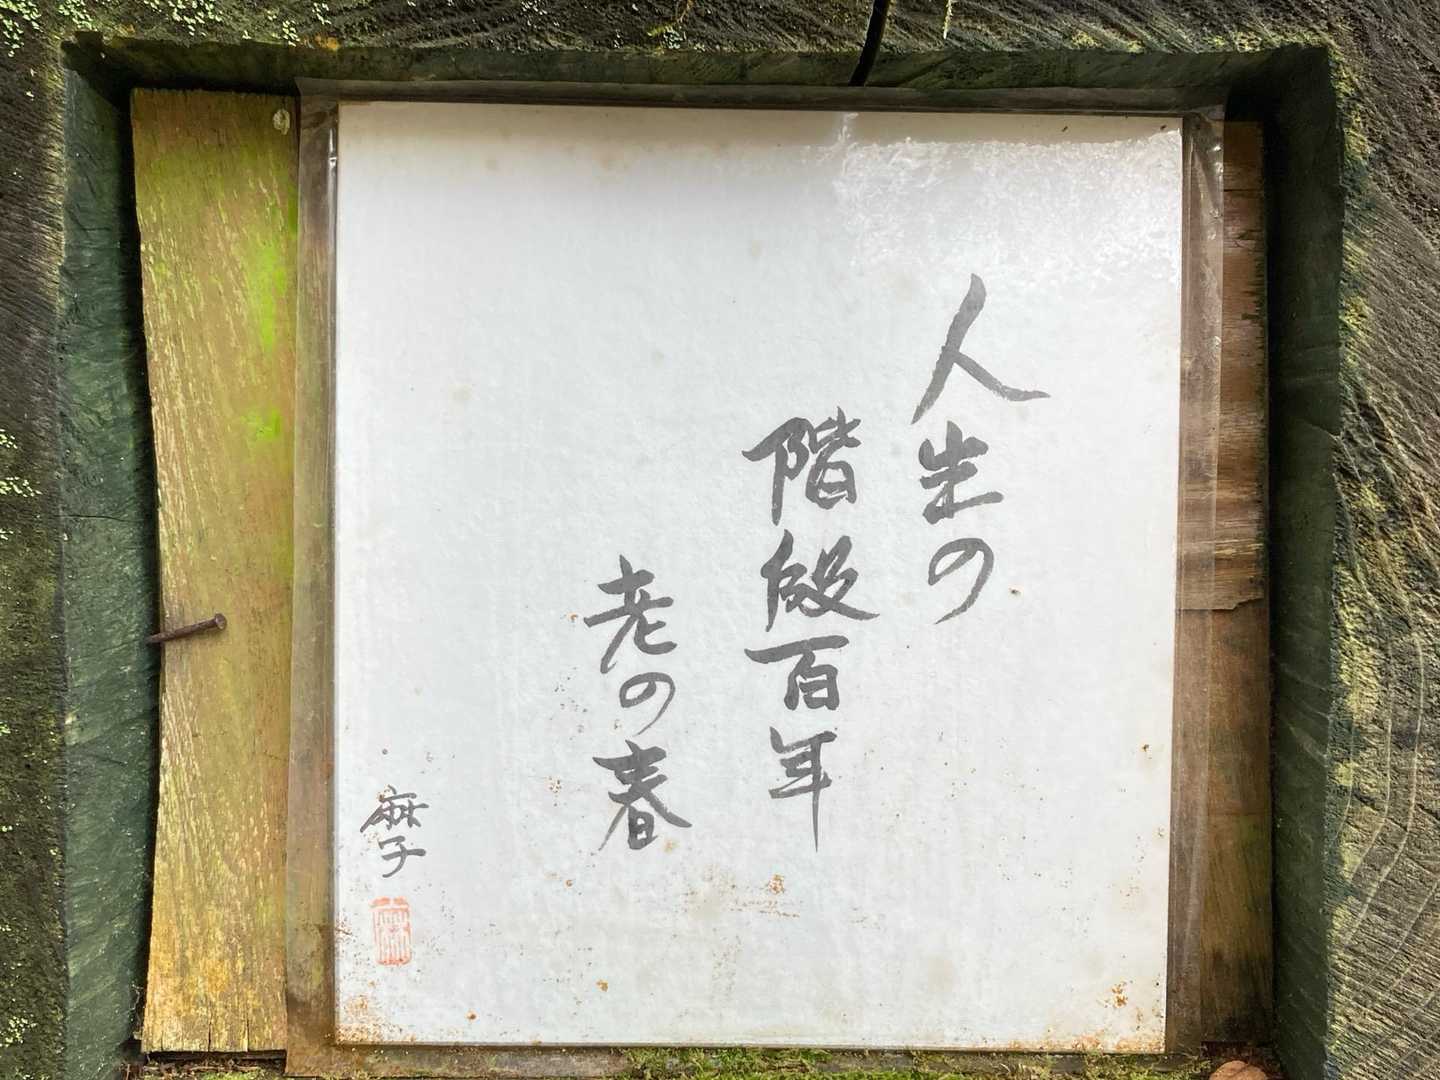 人生の
階段百年
老の春
麻子